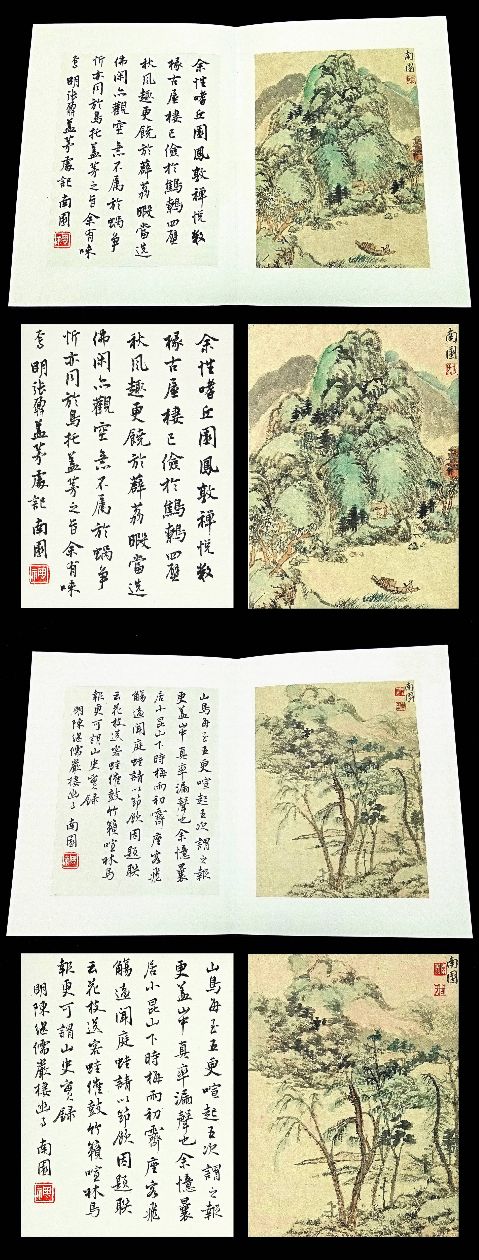 南園
余性嗜丘園夙敦禪悅數
椽古屋棲已儉於鷦鷯四壁
秋風趣更饒於薜荔暇當選
佛閑亦觀空意不属於蝸爭
忻亦同於鳥托蓋茅之旨余有味
焉 明張鼐蓋茅處記 南園
南園
余性嗜丘園夙敦禪悅數
椽古屋棲已儉於鷦鷯四壁
秋風趣更饒於薜荔暇當選
佛閑亦觀空意不属於蝸爭
忻亦同於鳥托蓋茅之旨余有味
焉 明張鼐蓋茅處記 南園
南園
山鳥每至五更喧起五次謂之報
更蓋山中真率漏聲也余憶曩
居小昆山下時梅雨初霽座客飛
觴適聞庭蛙請以節飲因題聯
云花枝送客蛙催鼓竹籟喧林鳥
報更可謂山史實錄
明陳繼儒巖棲幽事 南園
南園
山鳥每至五更喧起五次謂之報
更蓋山中真率漏聲也余憶曩
居小昆山下時梅雨初霽座客飛
觴適聞庭蛙請以節飲因題聯
云花枝送客蛙催鼓竹籟喧林鳥
報更可謂山史實錄
明陳繼儒巖棲幽事 南園